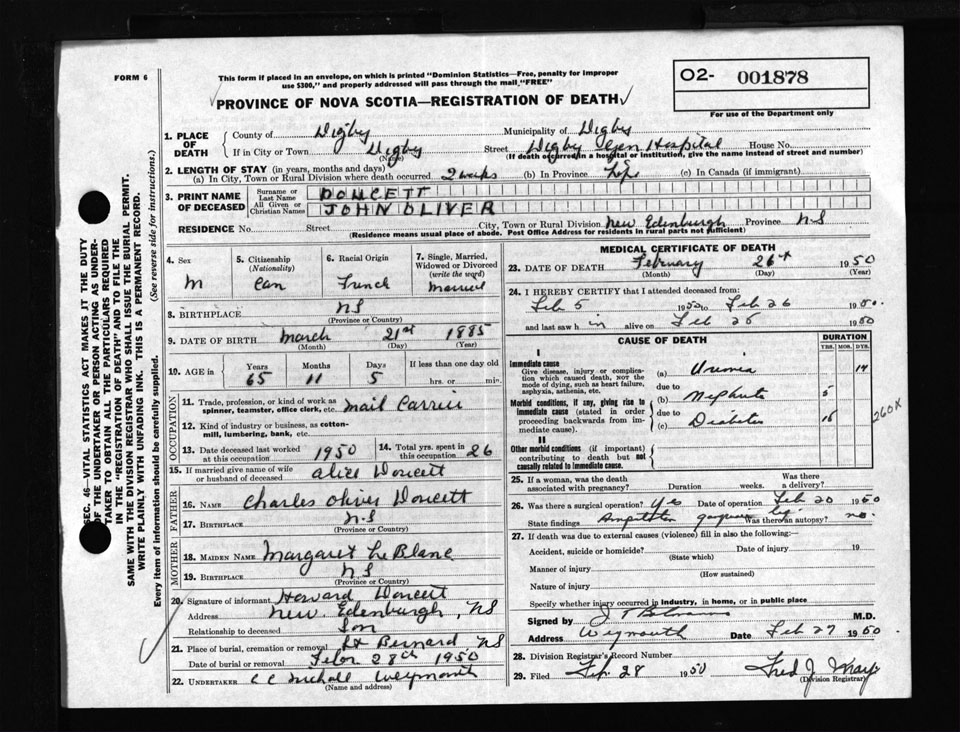 FORM 6
This form if placed in an envelope, on which is printed "Dominion Statistics—Free, penalty for improper
use $300," and properly addressed will pass through the mail "FREE"
O2- 001878
For use of the Department only
PROVINCE OF NOVA SCOTIA—REGISTRATION OF DEATH
SEC. 46—VITAL STATISTICS ACT MAKES IT THE DUTY
OF THE UNDERTAKER OR PERSON ACTING AS UNDER-
TAKER TO OBTAIN ALL THE PARTICULARS REQUIRED
IN THE "REGISTRATION OF DEATH" AND TO FILE THE
SAME WITH THE DIVISION REGISTRAR WHO SHALL ISSUE THE BURIAL PERMIT.
WRITE PLAINLY WITH UNFADING INK. THIS IS A PERMANENT RECORD.
Every item of information should be carefully supplied. (See reverse side for instructions.)
1. PLACE OF DEATH
County of Digby Municipality of Digby
If in City or Town Digby Street Digby Gen Hospital House No.
(Name) (If death occurred in a hospital or institution, give the name instead of street and number)
2. LENGTH OF STAY (in years, months and days)
(a) In City, Town or Rural Division where death occurred 2 weeks (b) In Province Life (c) In Canada (if immigrant)
3. PRINT NAME OF DECEASED
Surname or Last Name DOUCETT
All Given or Christian Names JOHN OLIVER
RESIDENCE No. Street City, Town or Rural Division New Edenburgh Province N.S
(Residence means usual place of abode. Post Office Address for residents in rural parts not sufficient)
4. Sex 5. Citizenship (Nationality) 6. Racial Origin 7. Single, Married, Widowed or Divorced (write the word)
M Can French Married
8. BIRTHPLACE NS
(Province or Country)
9. DATE OF BIRTH March 21st 1885
(Month) (Day) (Year)
10. AGE in Years Months Days If less than one day old
65 11 5 hrs. or min.
OCCUPATION
11. Trade, profession, or kind of work as
spinner, teamster, office clerk, etc. Mail Carrier
12. Kind of industry or business, as cotton-
mill, lumbering, bank, etc.
13. Date deceased last worked at this occupation 1950 14. Total yrs. spent in this occupation 26
15. If married give name of wife
or husband of deceased Alice Doucett
FATHER
16. NAME Charles Oliver Doucett
17. BIRTHPLACE N.S
(Province or Country)
MOTHER
18. MAIDEN NAME Margaret LeBlanc
19. BIRTHPLACE N.S
(Province or Country)
20. Signature of informant Howard Doucett
Address New Edenburgh, NS
Relationship to deceased Son
21. Place of burial, cremation or removal St Bernard NS
Date of burial or removal Febr 28th 1950
22. UNDERTAKER C C Weymouth
(Name and address)
MEDICAL CERTIFICATE OF DEATH
23. DATE OF DEATH February 26th 1950
(Month) (Day) (Year)
24. I HEREBY CERTIFY that I attended deceased from:
Feb 5 1950 to Feb 26 1950.
and last saw h im alive on Feb 25 1950
CAUSE OF DEATH DURATION
YRS. MOS. DYS.
I
Immediate cause
Give disease, injury or complica-
tion which caused death, not the
mode of dying, such as heart failure,
asphyxia, asthenia, etc.
(a) Uremia 14
due to
(b) Nephritis 5
Morbid conditions, if any, giving rise to
immediate cause (stated in order
proceeding backwards from im-
mediate cause).
due to
(c) Diabetes 16
260X
II
Other morbid conditions (if important)
contributing to death but not
causally related to immediate cause.
25. If a woman, was the death
associated with pregnancy? Duration weeks. Was there
a delivery?
26. Was there a surgical operation? Yes Date of operation Feb 20 1950
State findings leg Was there an autopsy? no.
27. If death was due to external causes (violence) fill in also the following:
Accident, suicide or homicide? Date of injury 19
(State which)
Manner of injury
(How sustained)
Nature of injury
Specify whether injury occurred in industry, in home, or in public place
Signed by M.D.
Address Weymouth Date Feb 27 1950.
28. Division Registrar's Record Number
29. Filed Feb. 28 1950 Fred J.
(Division Registrar)